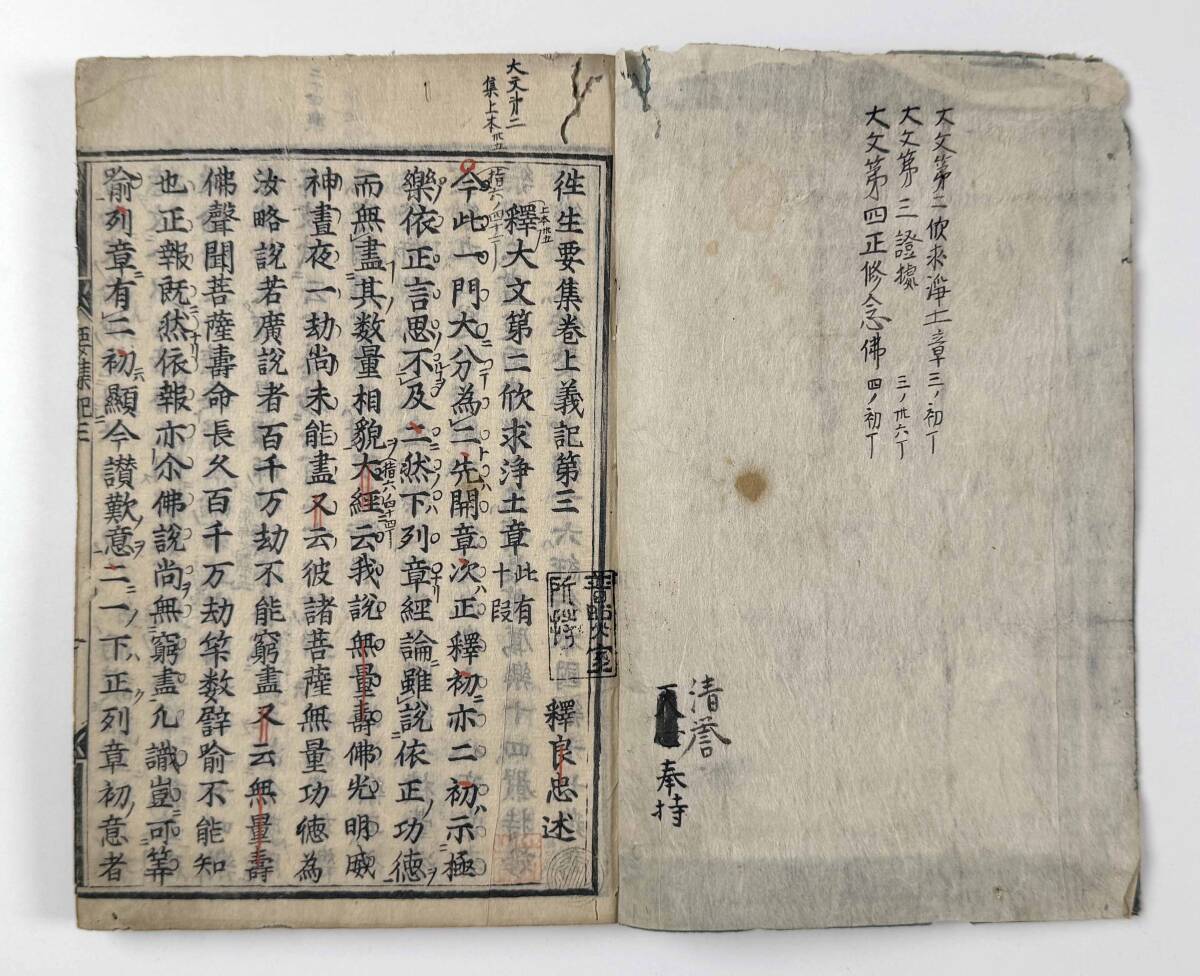 大文第二欣求淨土章 三ノ初丁
大文第三 證據 三ノ卅六丁
大文第四正修念佛 四ノ初丁
清誉
奉持
大文第二
集上本卅五
往生要集卷上義記第三 釋良忠述
釋大文第二欣求淨土章 此有十段
上本卅五
今此一門大分為二先開章次正釋初亦二初示極
樂依正言思不及二然下列章經論雖說依正功德
而無盡其数量相貌大經云我說無量壽佛光明威
神晝夜一劫尚未能盡又云彼諸菩薩無量功德為
汝略說若廣說者百千万劫不能窮盡又云無量壽
佛聲聞菩薩壽命長久百千万劫筭数譬喻不能知
也正報既然依報亦尒佛說尚無窮盡凡識豈可筭
喻列章有二初顯今讃歎意二一下正列章初意者
要集記三